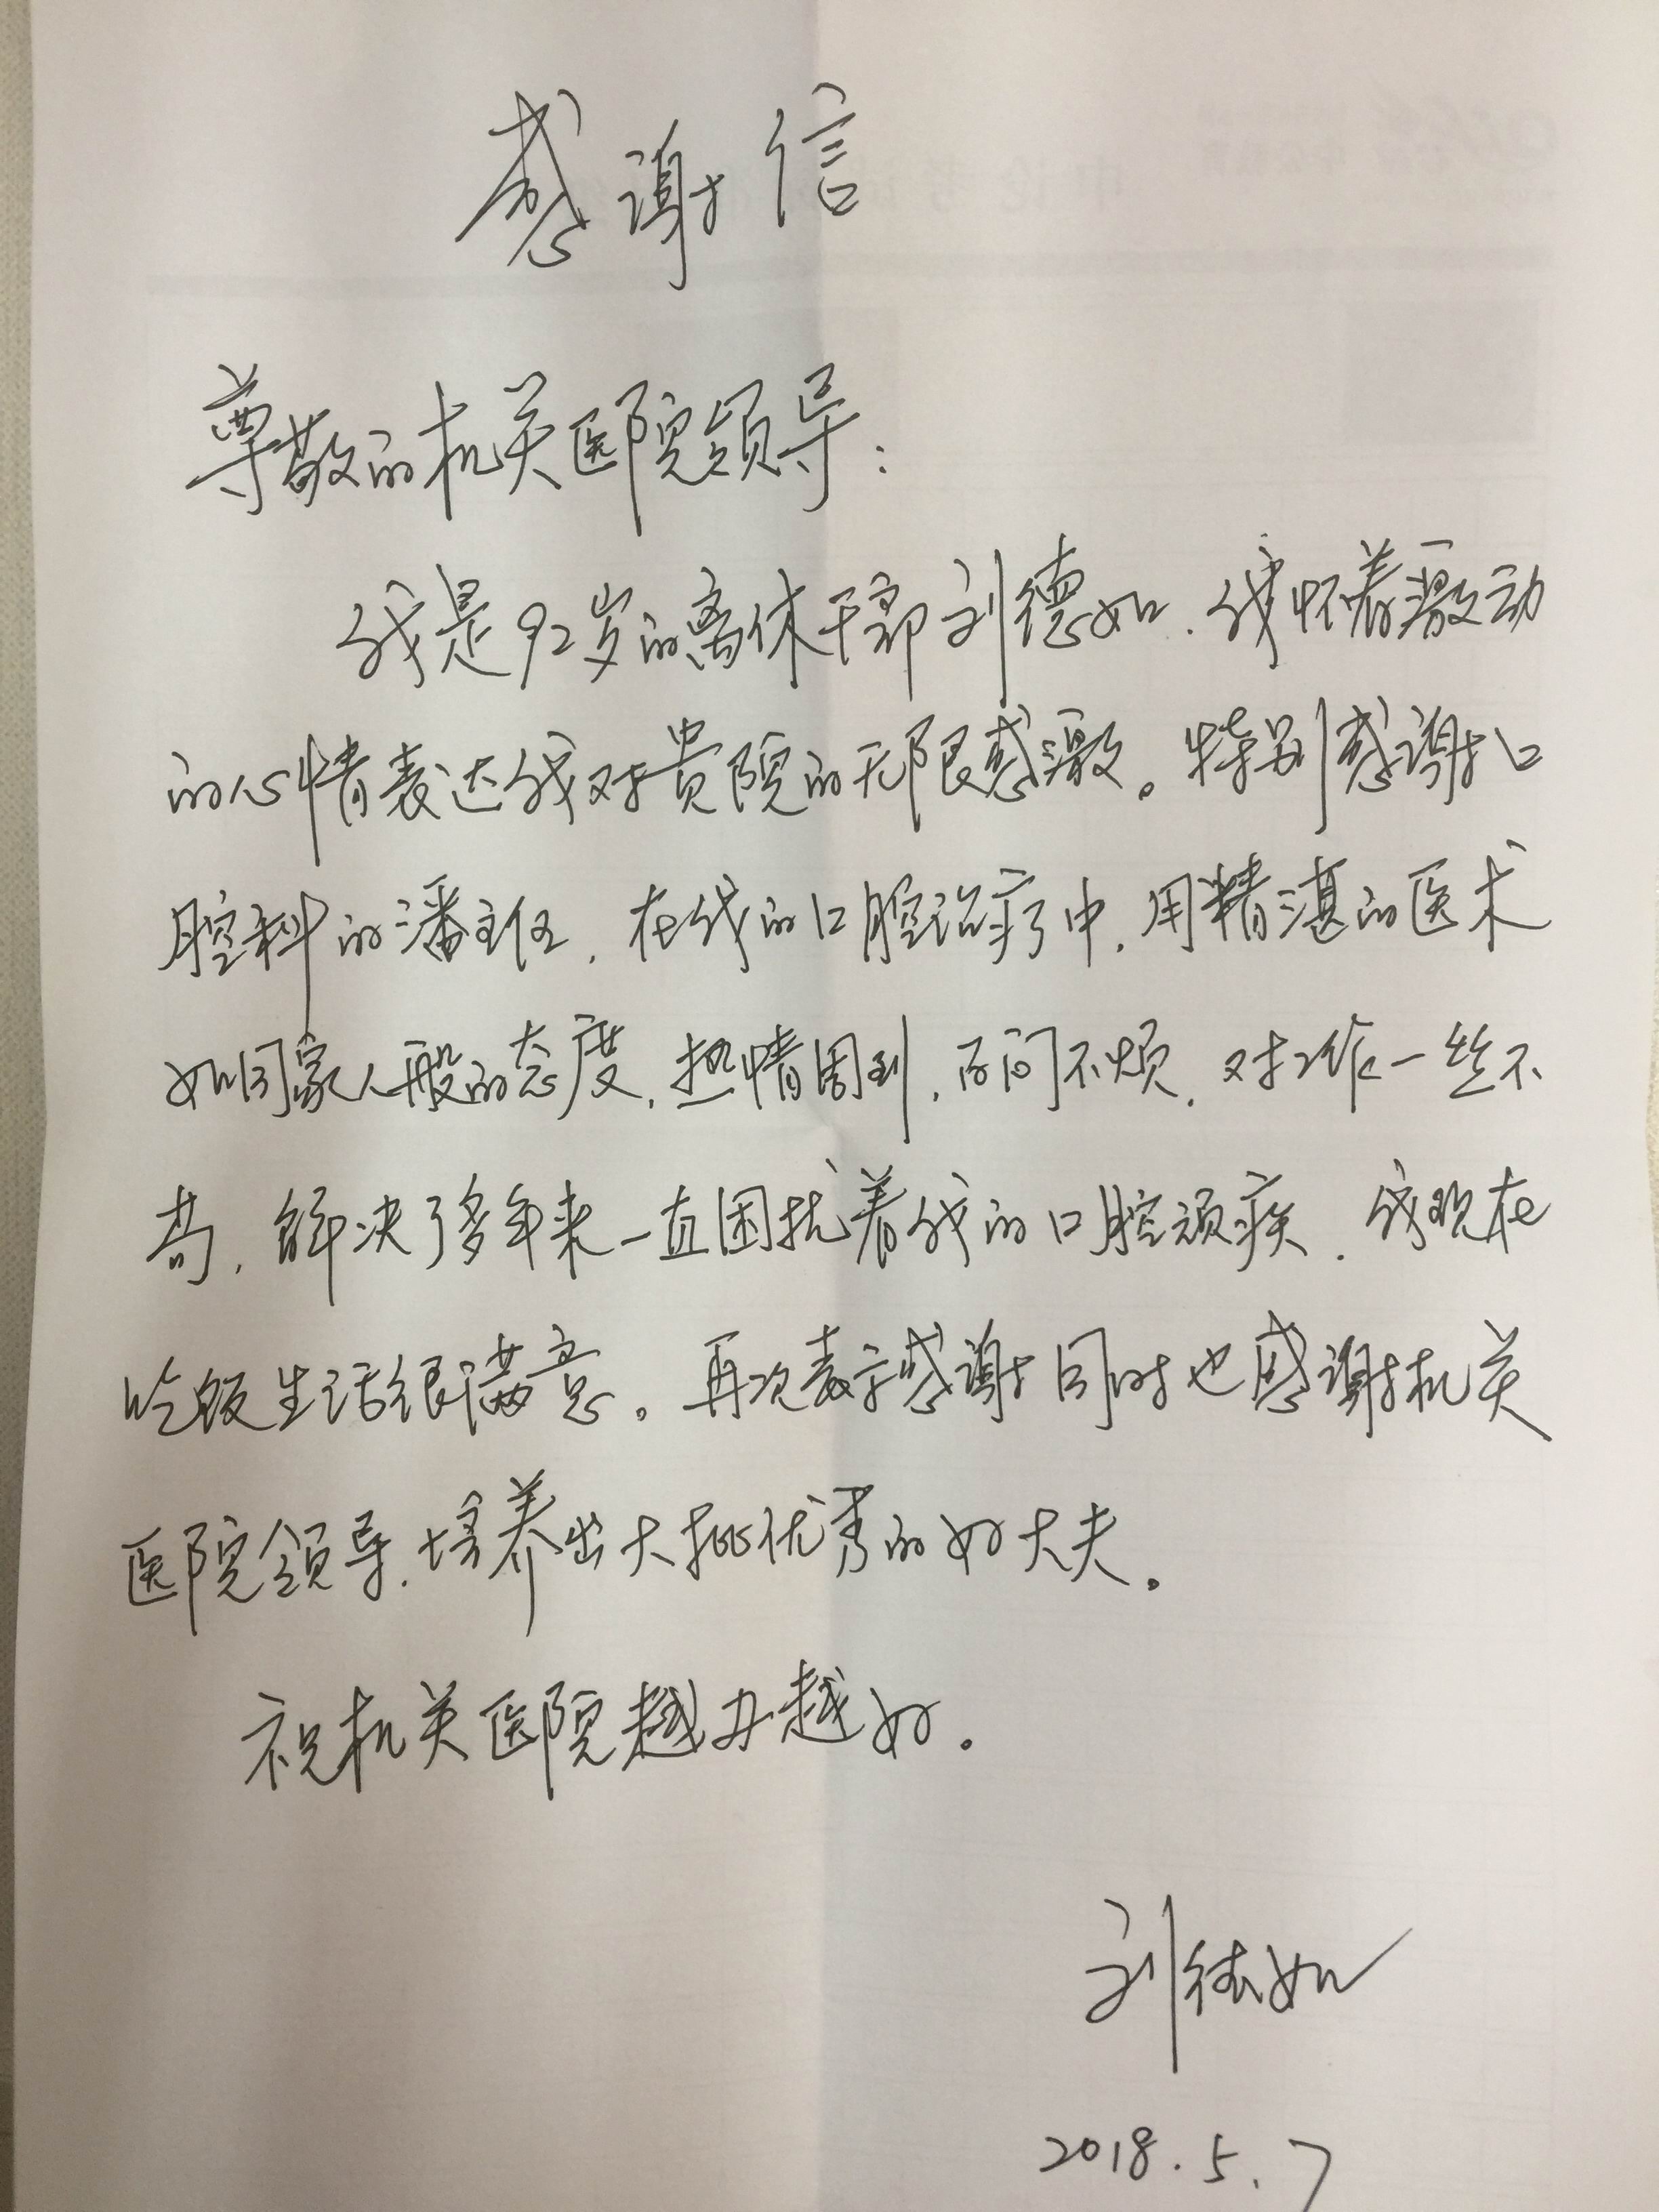 感谢信
尊敬的机关医院领导：
我是92岁的离休干部刘德如，我怀着激动
的心情表达我对贵院的无限感激。特别感谢口
腔科的潘主任，在我的口腔治疗中，用精湛的医术
如同家人般的态度，热情周到，百问不烦，对工作一丝不
苟，解决了多年来一直困扰着我的口腔顽疾，我现在
吃饭生活很满意。再次表示感谢同时也感谢机关
医院领导，培养出大批优秀的好大夫。
祝机关医院越办越好。
刘德如
2018.5.7